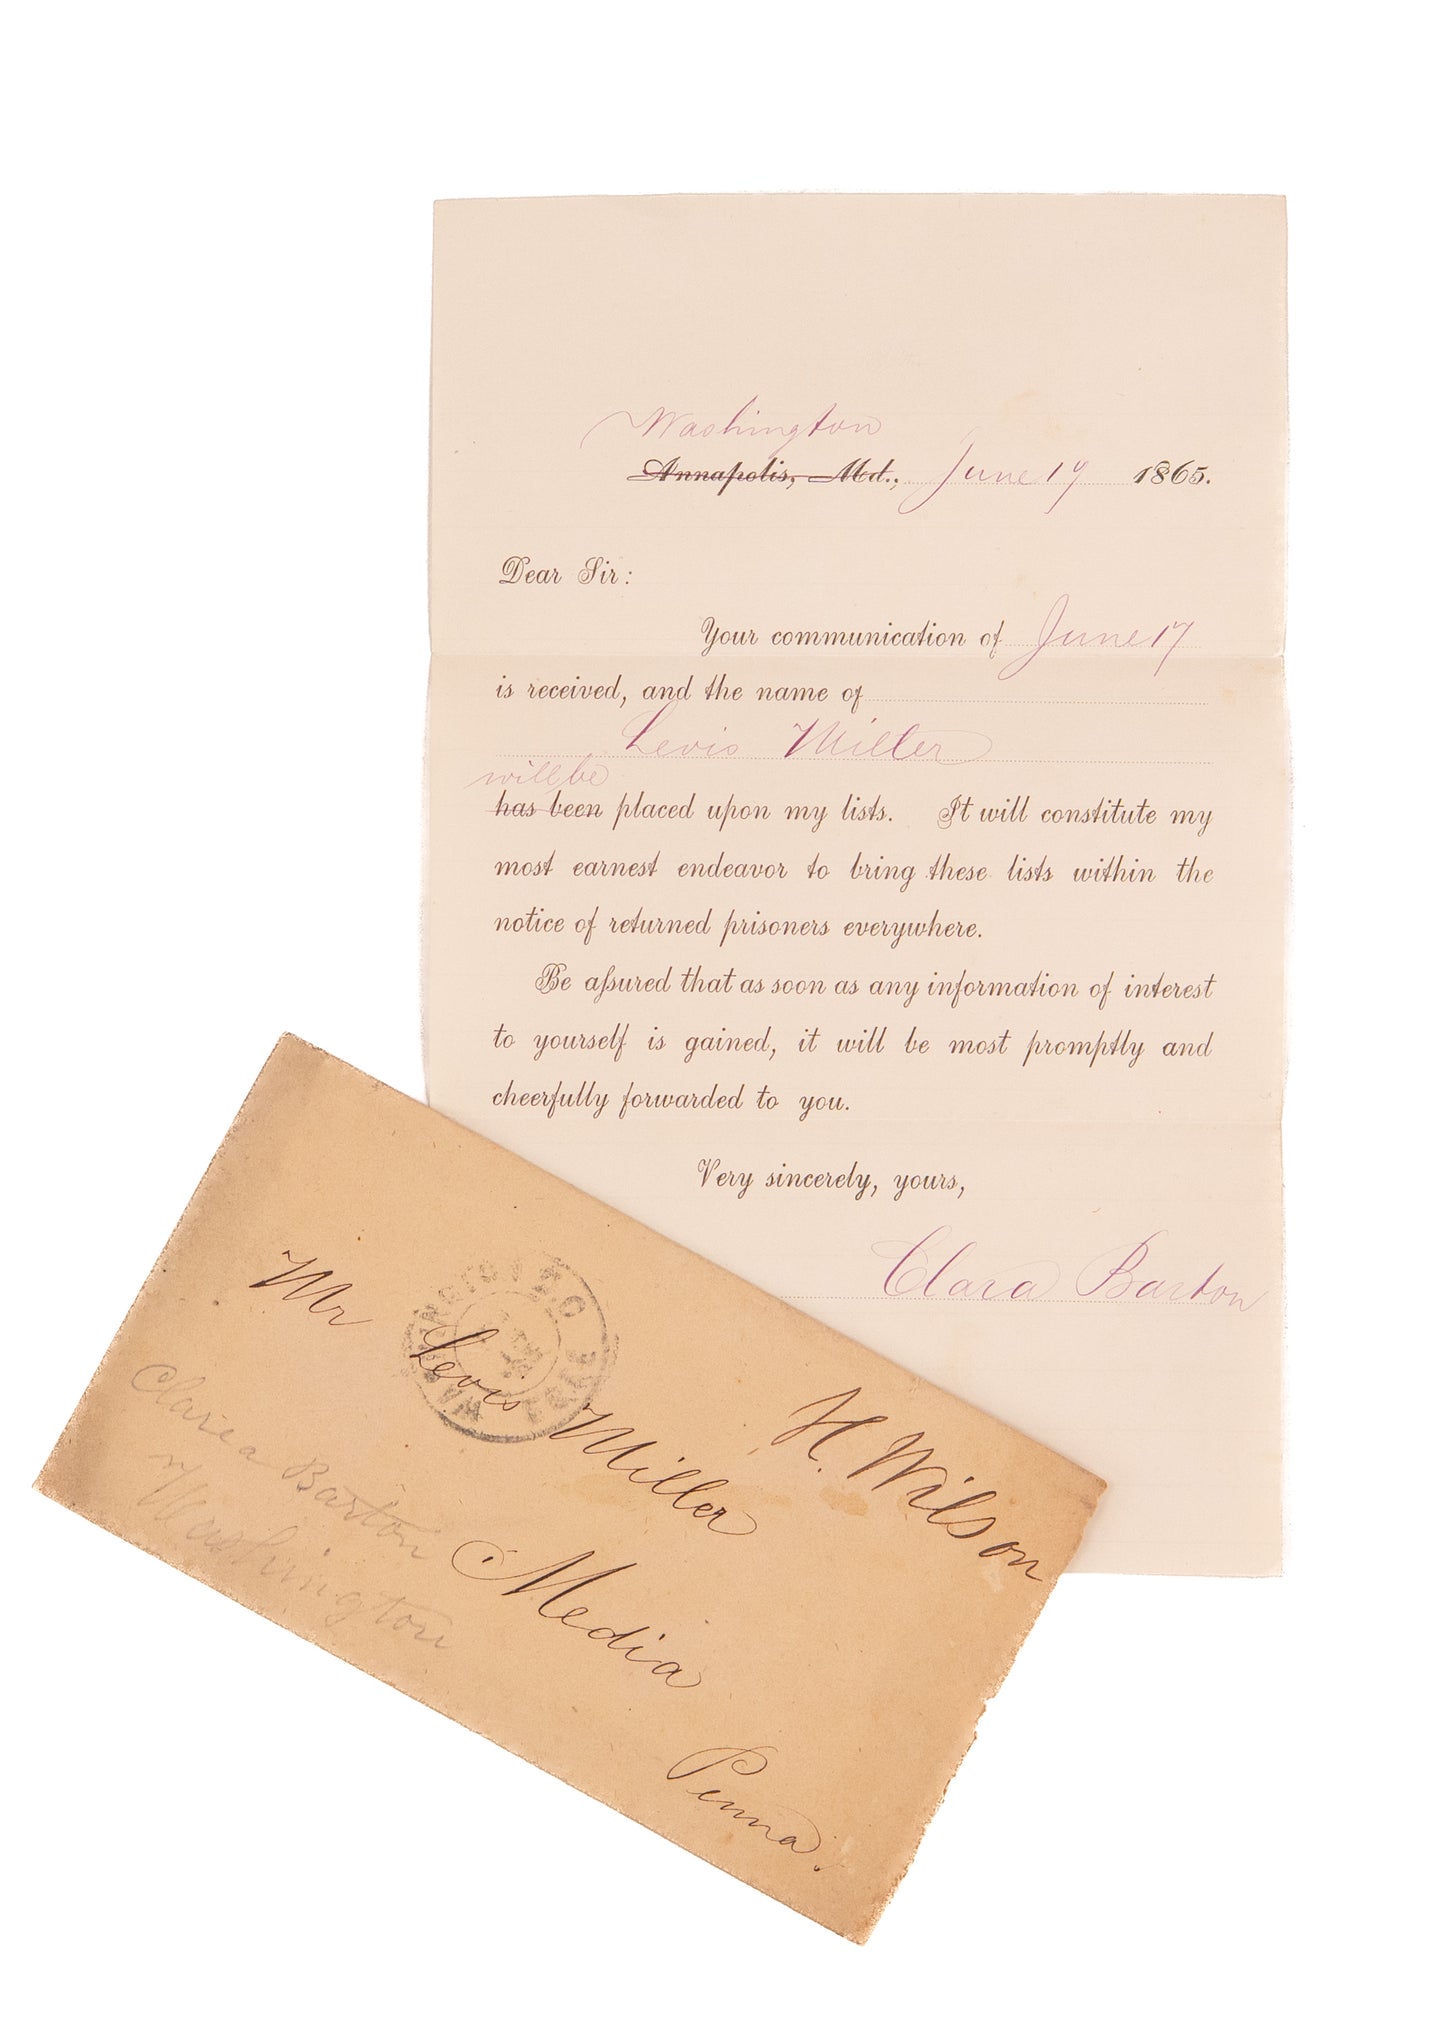 Washington
Annapolis, Md., June 19 1865.
Dear Sir:
Your communication of June 17
is received, and the name of
Levis Miller
will be
has been placed upon my lists. It will constitute my
most earnest endeavor to bring these lists within the
notice of returned prisoners everywhere.
Be aſsured that as soon as any information of interest
to yourself is gained, it will be most promptly and
cheerfully forwarded to you.
Very sincerely, yours,
Clara Barton
Mr Levis Miller
H. Wilson
Media
Penna.
Clarea Barton
Washington